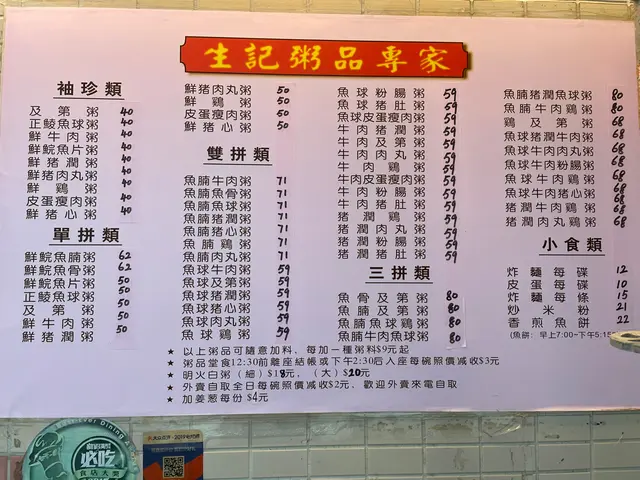 生記粥品專家
袖珍類
及第粥 40
正鯪魚球粥 40
鮮牛肉粥 40
鮮鯇魚片粥 40
鮮豬潤粥 40
鮮豬肉丸粥 40
鮮鷄粥 40
皮蛋瘦肉粥 40
鮮豬心粥 40
單拼類
鮮鯇魚腩粥 62
鮮鯇魚骨粥 62
鮮鯇魚片粥 50
正鯪魚球粥 50
及第粥 50
鮮牛肉粥 50
鮮豬潤粥
鮮豬肉丸粥 50
鮮鷄粥 50
皮蛋瘦肉粥 50
鮮豬心粥 50
雙拼類
魚腩牛肉粥 71
魚腩魚骨粥 71
魚腩魚球粥 71
魚腩豬潤粥 71
魚腩豬心粥 71
魚腩鷄粥 71
魚腩肉丸粥 71
魚球牛肉粥 59
魚球及第粥 59
魚球豬潤粥 59
魚球豬心粥 59
魚球肉丸粥 59
魚球鷄粥 59
魚球粉腸粥 59
魚球豬肚粥 59
魚球皮蛋瘦肉粥 59
牛肉豬潤粥 59
牛肉及第粥 59
牛肉肉丸粥 59
牛肉鷄粥 59
牛肉皮蛋瘦肉粥 59
牛肉粉腸粥 59
牛肉豬肚粥 59
豬潤鷄粥 59
豬潤肉丸粥 59
豬潤粉腸粥 59
豬潤豬心粥 59
三拼類
魚骨及第粥 80
魚腩及第粥 80
魚腩魚球鷄粥 80
魚腩牛肉魚球粥 80
魚腩豬潤魚球粥 80
魚腩牛肉鷄粥 80
鷄及第粥 68
魚球豬潤牛肉粥 68
魚球牛肉肉丸粥 68
魚球牛肉粉腸粥 68
魚球牛肉豬心粥 68
豬潤牛肉鷄粥 68
魚球牛肉鷄粥 68
小食類
炸麵每碟 12
皮蛋每碟 10
炸麵每條 15
炒米粉 21
香煎魚餅 22
(魚餅: 早上7:00~下午5:15
★ 以上粥品可隨意加料，每加一種粥料$9元起
★ 粥品堂食12:30前離座結帳或下午2:30后入座每碗照價減收$3元
★ 明火白粥 (細) $18元， (大) $20元
★ 外賣自取全日每碗照價减收$2元，歡迎外賣來電自取
★ 加姜葱每份 $4元
必吃